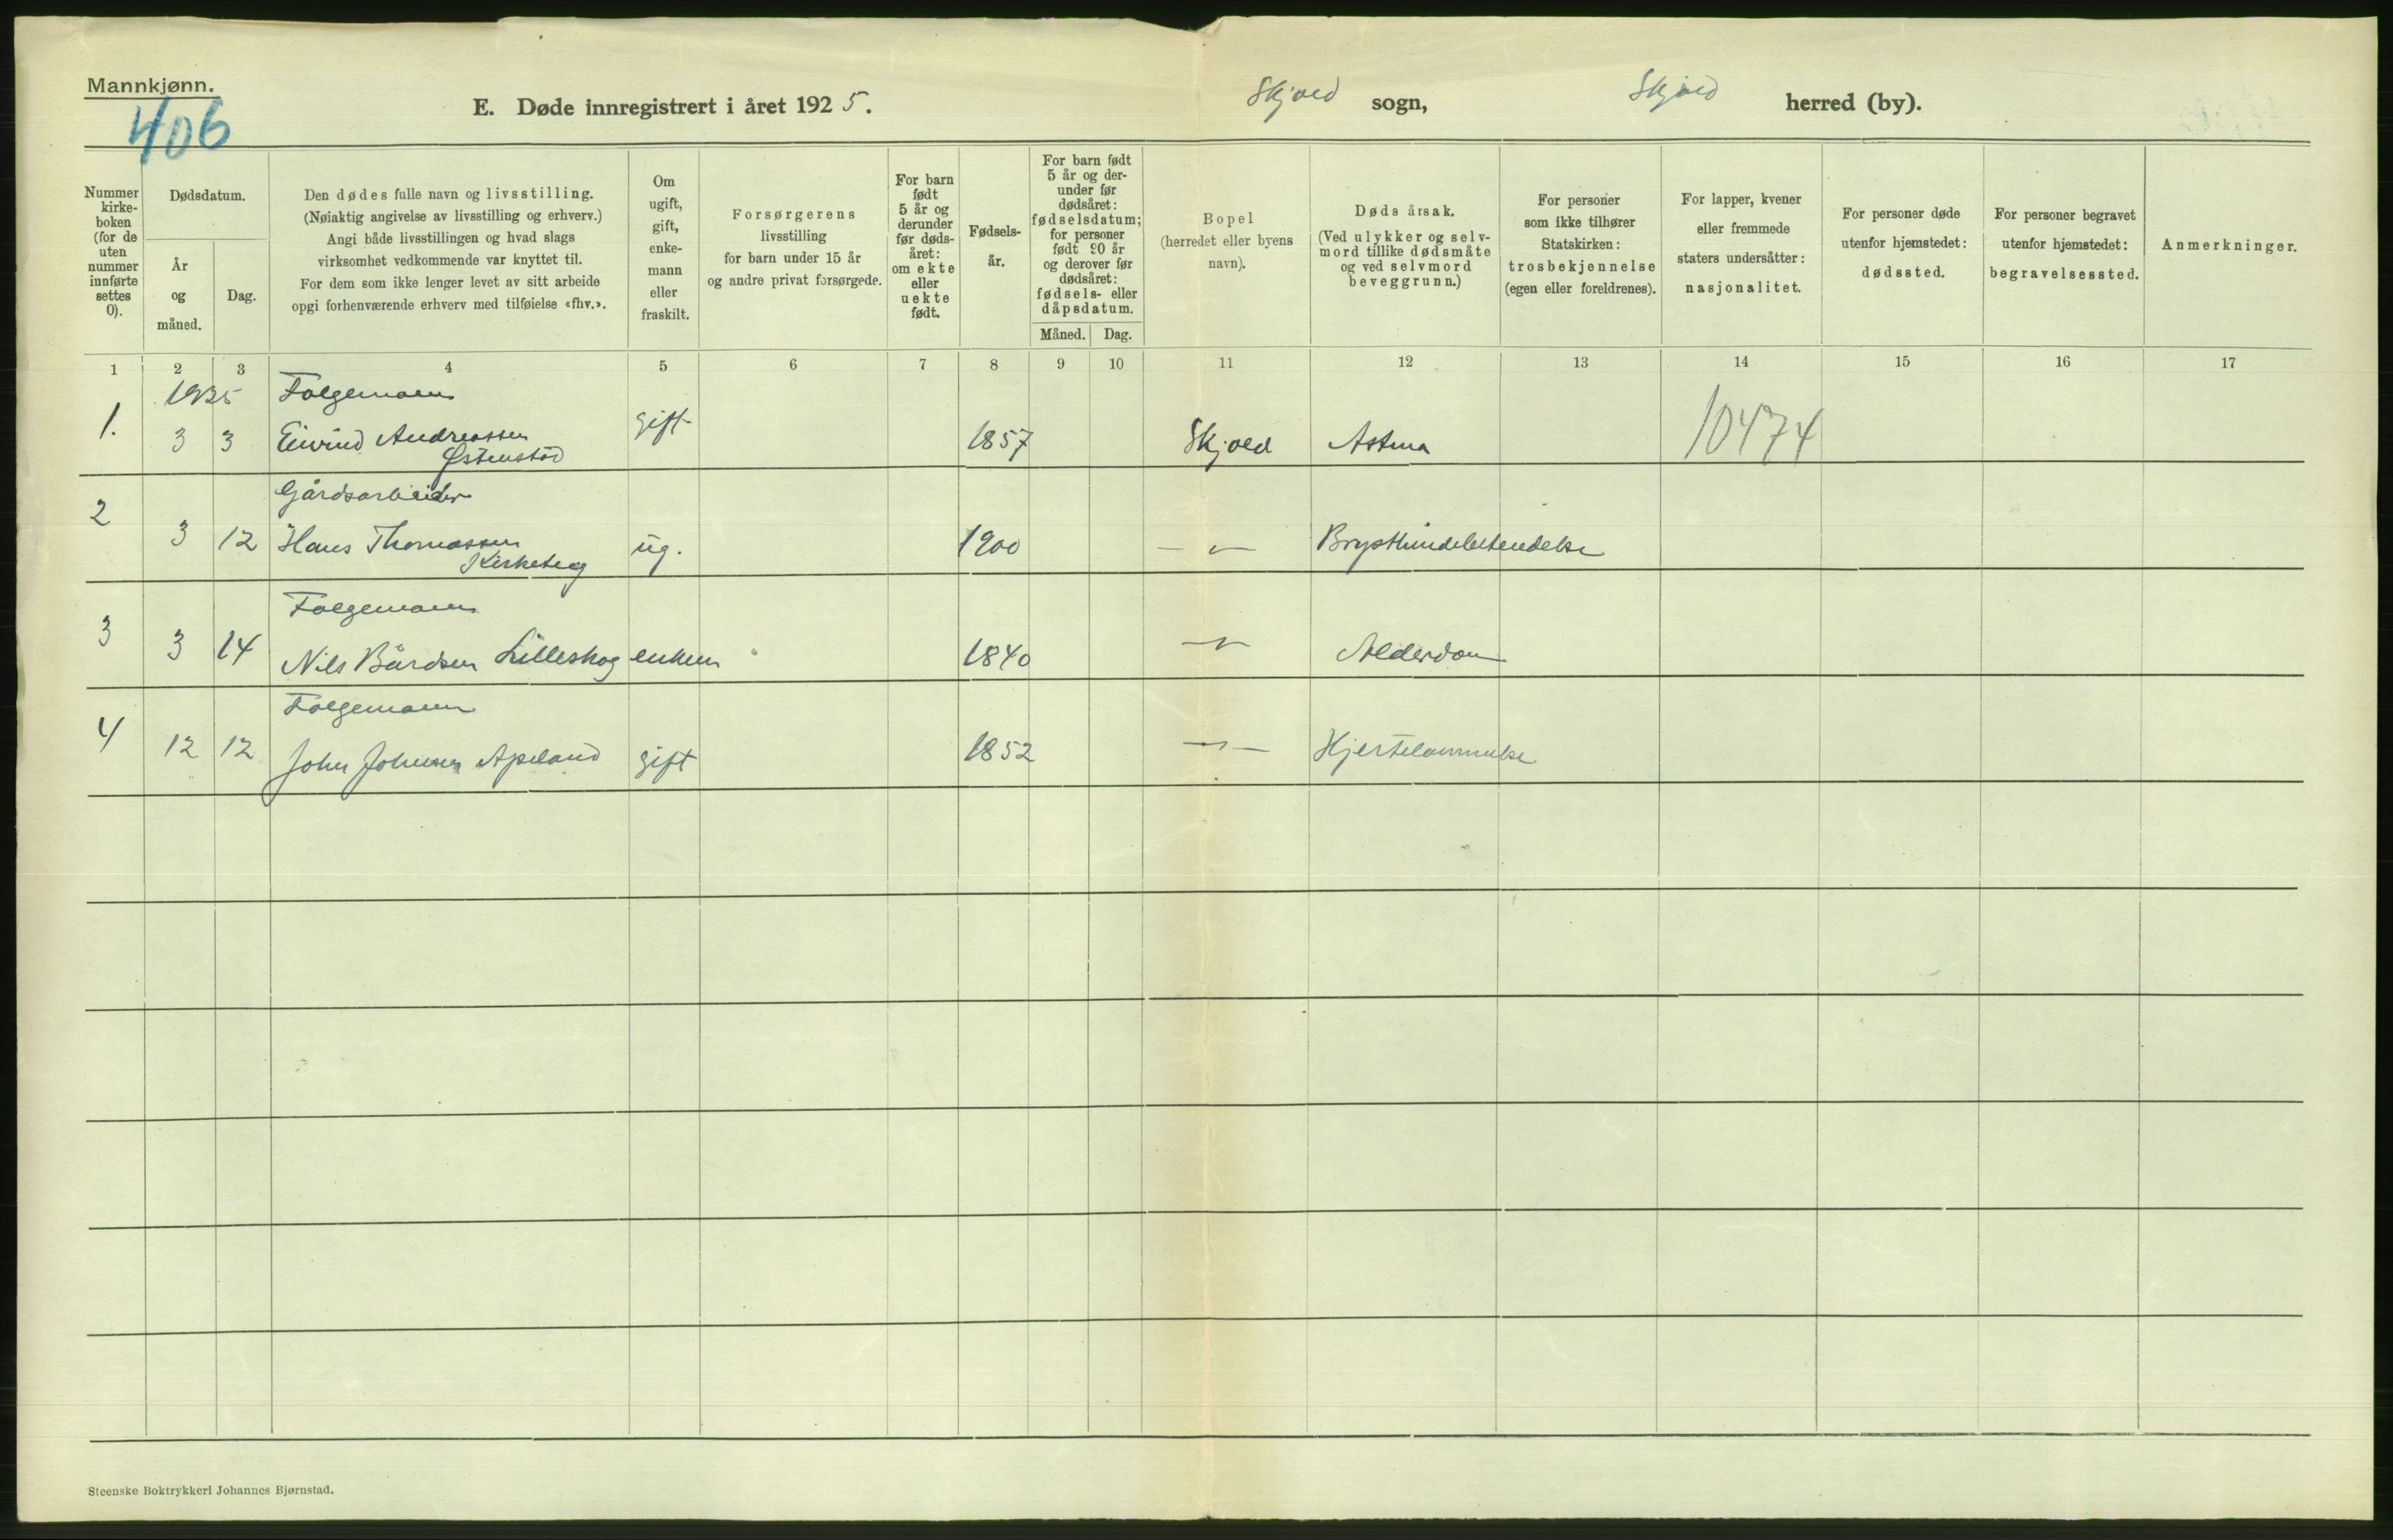 Mannkjønn.
406
E. Døde innregistrert i året 1925.
Skjold sogn,
Skjold herred (by).
Nummer kirke- boken (for de uten nummer innførte settes 0).
Dødsdatum.
År og måned.
Dag.
Den dødes fulle navn og livsstilling.
(Nøiaktig angivelse av livsstilling og erhverv.)
Angi både livsstillingen og hvad slags
virksomhet vedkommende var knyttet til.
For dem som ikke lenger levet av sitt arbeide
opgi forhenværende erhverv med tilføielse «fhv.».
Om ugift, gift, enke- mann eller fraskilt.
Forsørgerens
livsstilling
for barn under 15 år
og andre privat forsørgede.
For barn født 5 år og derunder før døds- året: om ekte eller uekte født.
Fødsels- år.
For barn født 5 år og der- under før dødsåret: fødselsdatum; for personer født 90 år og derover før dødsåret: fødsels- eller dåpsdatum.
Måned.
Dag.
Bopel
(herredet eller byens
navn).
Dødsårsak.
(Ved ulykker og selv-
mord tillike dødsmåte
og ved selvmord
beveggrunn.)
For personer
som ikke tilhører
Statskirken:
trosbekjennelse
(egen eller foreldrenes).
For lapper, kvener
eller fremmede
staters undersåtter:
nasjonalitet.
For personer døde
utenfor hjemstedet:
dødssted.
For personer begravet
utenfor hjemstedet:
begravelsessted.
Anmerkninger.
1 2 3 4 5 6 7 8 9 10 11 12 13 14 15 16 17
1925 Følgemann
1. 3 3 Eivind Andreassen gift 1857 Skjold Astma 10474
Østenstød
Gårdsarbeider
2 3 12 Hans Thomassen ug. 1900 — " — Brysthindebetendelse
Kirketeig
Følgemann
3 3 14 Nils Bårdsen Lilleskog enkem 1840 — " — Alderdom
Følgemann
4 12 12 John Johnsen Apeland gift 1852 — " — Hjertelammelse
Steenske Boktrykkeri Johannes Bjørnstad.